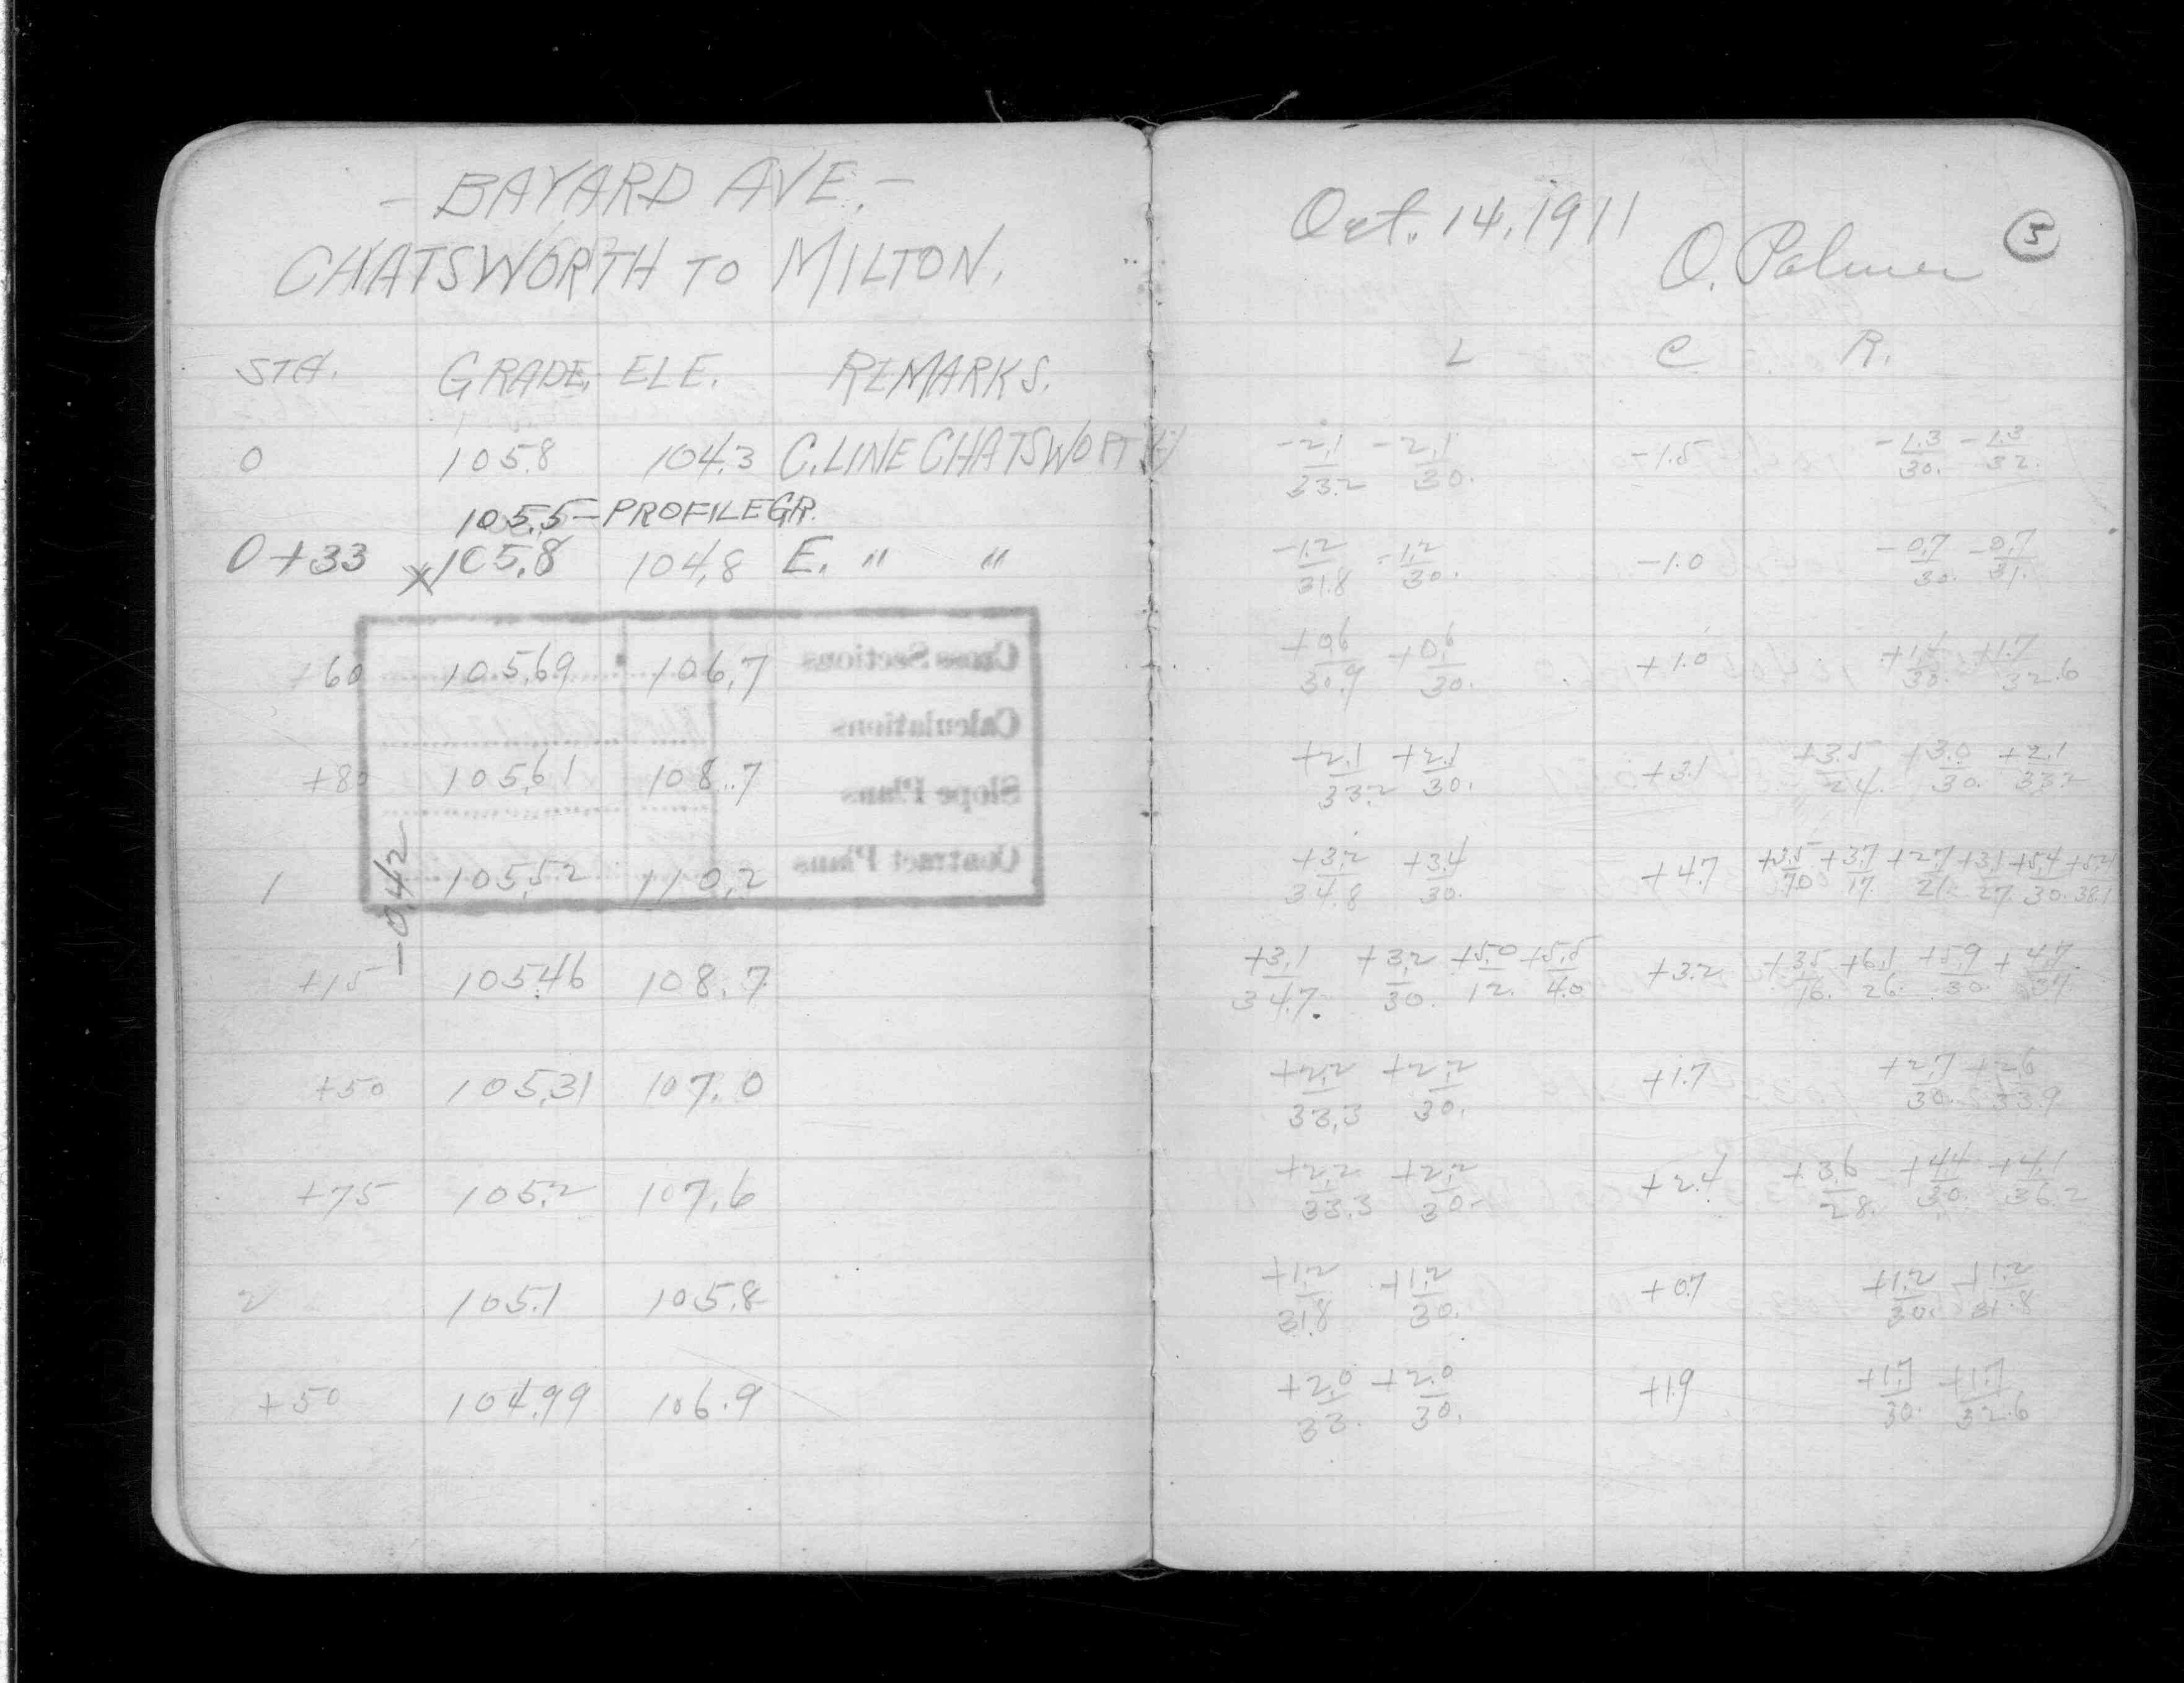 - BAYARD AVE. -
CHATSWORTH TO MILTON.
STA. GRADE. ELE. REMARKS.
0 105.8 104.3 C. LINE CHATSWORTH
105.5 - PROFILE GR.
0+33 x105.8 104.8 E. " "
+60 105.69 106.7
+80 105.61 108.7
1 105.52 110.2
-0.42
+15 105.46 108.7
+50 105.31 107.0
+75 105.2 107.6
2 105.1 105.8
+50 104.99 106.9
Cross Sections
Calculations
Slope Plans
Contract Plans
Oct. 14, 1911
O. Palmer
L C R.
-2.1 -2.1 -1.5 -1.3 -1.3
33.2 30. 30. 32.
-1.2 -1.2 -1.0 -0.7 -0.7
31.8 30. 30. 31.
+0.6 +0.6 +1.0 +1.7
30.9 30. 30. 32.6
+2.1 +2.1 +3.1 +3.5 +3.0 +2.1
33.2 30. 24. 30. 33.2
+3.2 +3.4 +4.7 +3.5 +3.7 +2.7 +3.1 +5.4 +5.4
34.8 30. 17. 21. 27. 30. 38.1
+3.1 +3.2 +5.0 +5.5 +3.2 +3.5 +6.1 +5.9 +4.7
34.7 30. 12. 4.0 16. 26. 30. 37.
+2.2 +2.2 +1.7 +2.7 +2.6
33.3 30. 30. 33.9
+2.2 +2.2 +2.4 +3.6 +4.4 +4.1
33.3 30. 28. 30. 36.2
+1.2 +1.2 +0.7 +1.2 +1.2
31.8 30. 30. 31.8
+2.0 +2.0 +1.9 +1.7 +1.7
33. 30. 30. 32.6